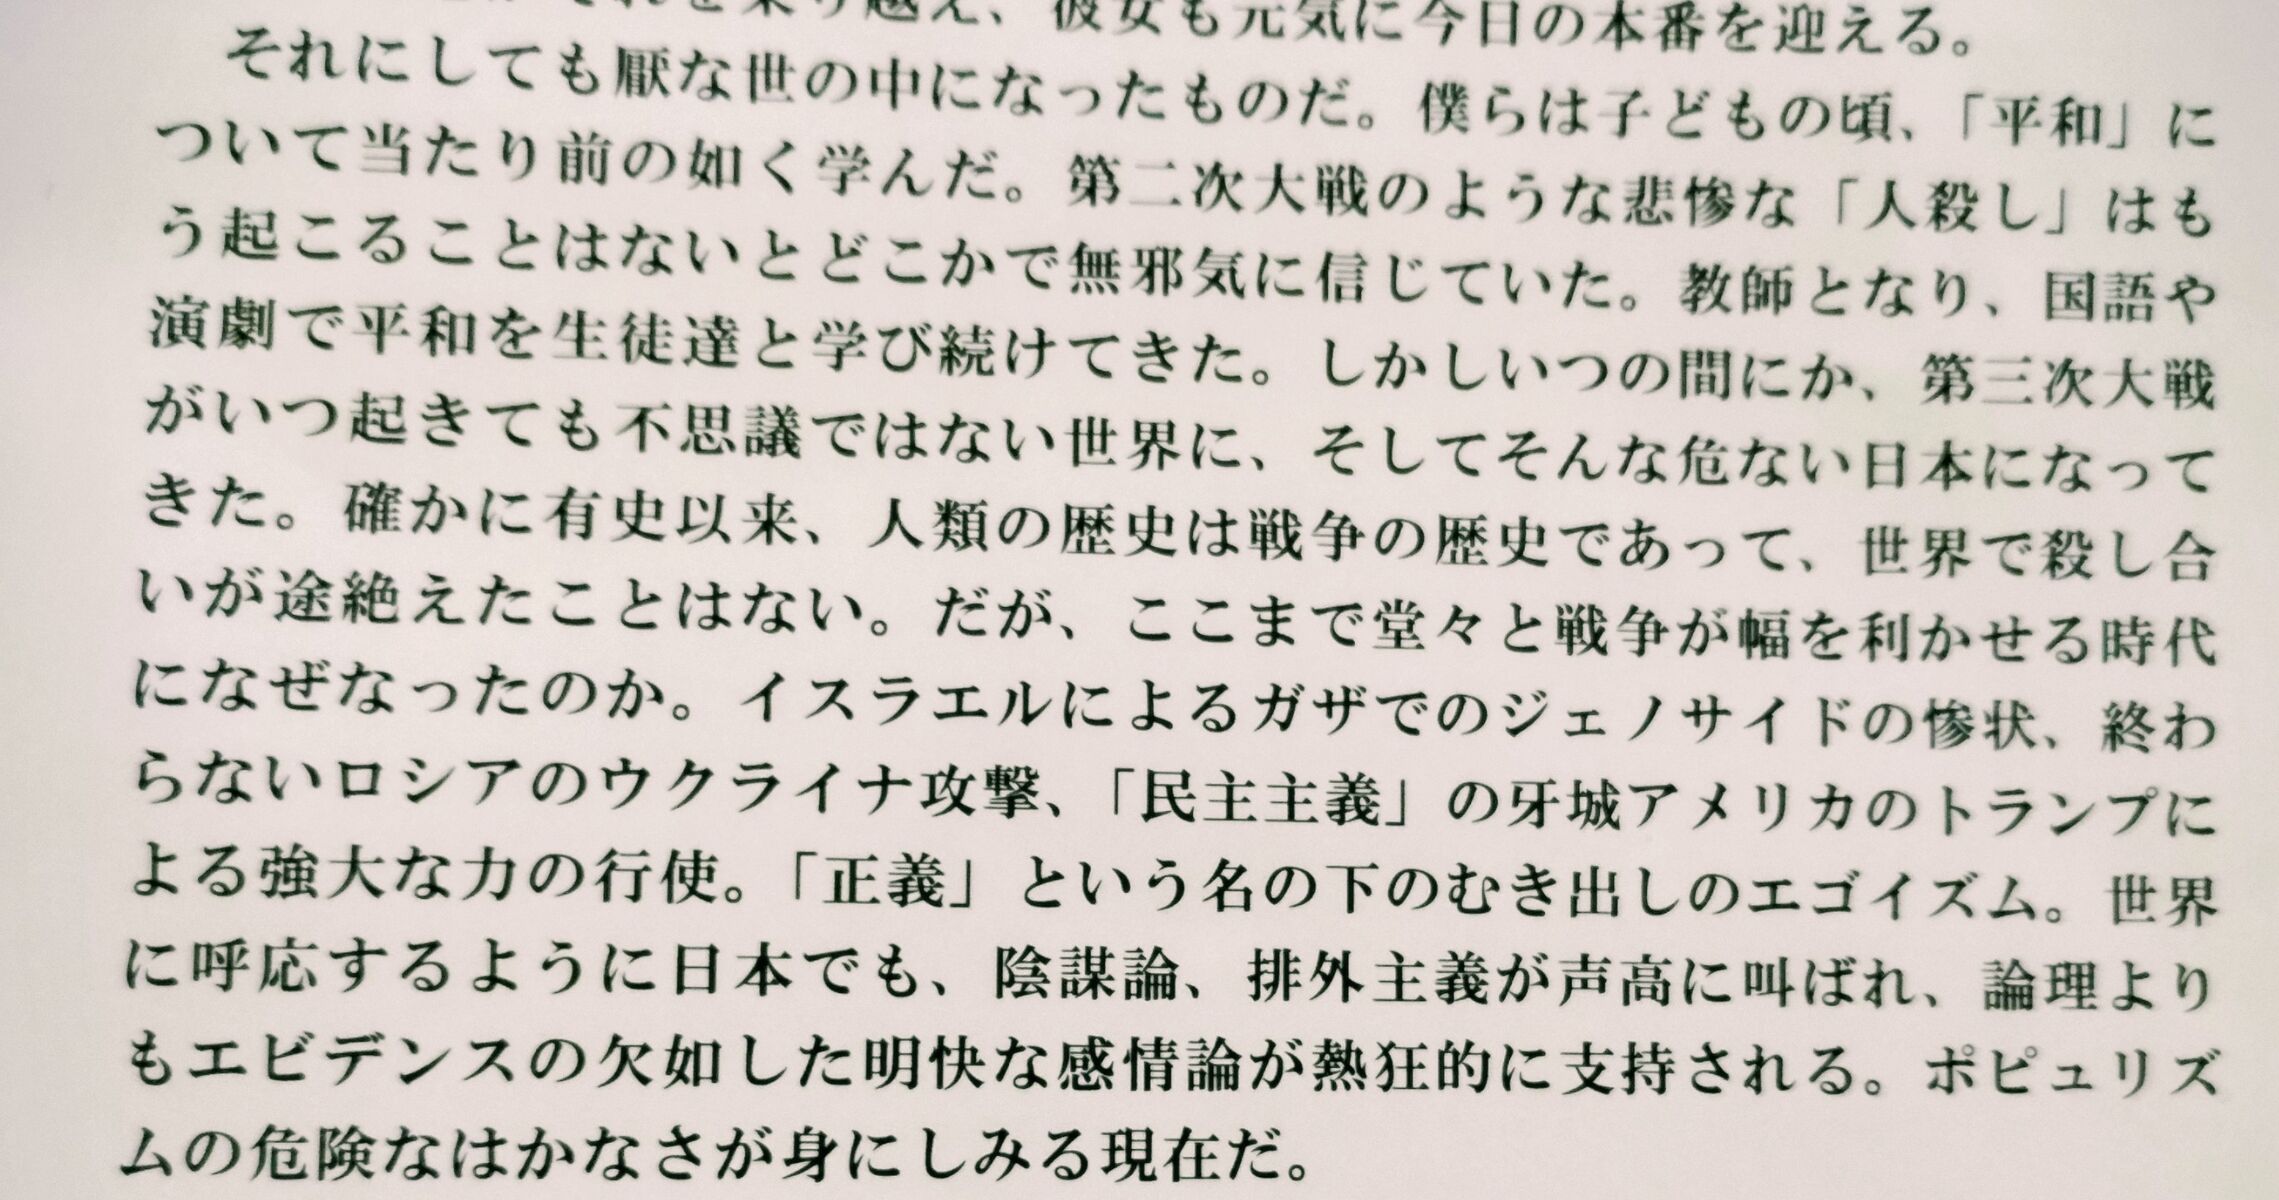 それを乗り越え、彼女も元気に今日の本番を迎える。
それにしても厭な世の中になったものだ。僕らは子どもの頃、「平和」に
ついて当たり前の如く学んだ。第二次大戦のような悲惨な「人殺し」はも
う起こることはないとどこかで無邪気に信じていた。教師となり、国語や
演劇で平和を生徒達と学び続けてきた。しかしいつの間にか、第三次大戦
がいつ起きても不思議ではない世界に、そしてそんな危ない日本になって
きた。確かに有史以来、人類の歴史は戦争の歴史であって、世界で殺し合
いが途絶えたことはない。だが、ここまで堂々と戦争が幅を利かせる時代
になぜなったのか。イスラエルによるガザでのジェノサイドの惨状、終わ
らないロシアのウクライナ攻撃、「民主主義」の牙城アメリカのトランプに
よる強大な力の行使。「正義」という名の下のむき出しのエゴイズム。世界
に呼応するように日本でも、陰謀論、排外主義が声高に叫ばれ、論理より
もエビデンスの欠如した明快な感情論が熱狂的に支持される。ポピュリズ
ムの危険なはかなさが身にしみる現在だ。